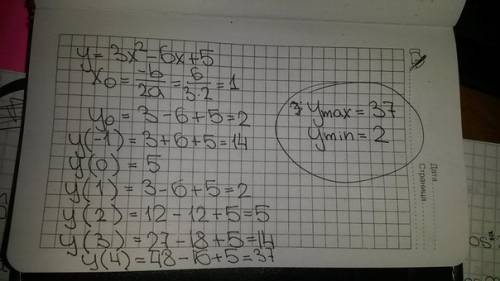 y = 3x² - 6x + 5
x₀ = -b/2a = 6/3·2 = 1
y₀ = 3 - 6 + 5 = 2
y(-1) = 3 + 6 + 5 = 14
y(0) = 5
y(1) = 3 - 6 + 5 = 2
y(2) = 12 - 12 + 5 = 5
y(3) = 27 - 18 + 5 = 14
y(4) = 48 - 16 + 5 = 37
З: ymax = 37
ymin = 2
Дата
Страница